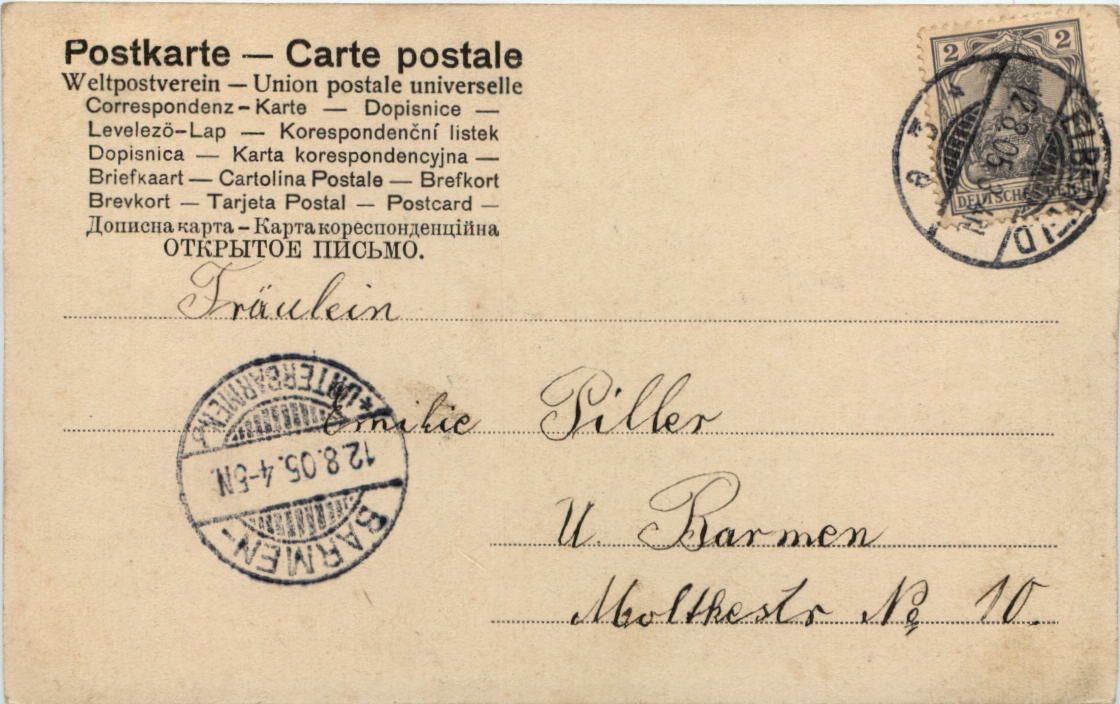 Postkarte — Carte postale
Weltpostverein — Union postale universelle
Correspondenz-Karte — Dopisnice —
Levelező-Lap — Korespondenční listek
Dopisnica — Karta korespondencyjna —
Briefkaart — Cartolina Postale — Brefkort
Brevkort — Tarjeta Postal — Postcard —
Дописна карта – Карта кореспонденційна
ОТКРЫТОЕ ПИСЬМО.
2 2
DEUTSCHES REICH
ELBERFELD
12.8.05.
Fräulein
Emilie Piller
U. Barmen
Moltkestr No 10.
BARMEN-
12.8.05.4-5N.
*UNTERBARMEN